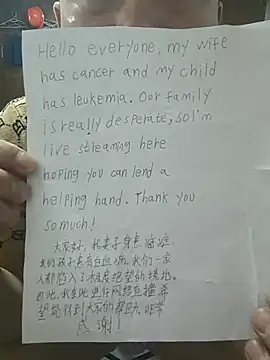 Hello everyone, my wife
has cancer and my child
has leukemia. Our family
is really desperate, so I'm
live streaming here
hoping you can lend a
helping hand. Thank you
so much!
大家好，我妻子身患癌症，
我的孩子患有白血病，我们一家
人都陷入了极度绝望的境地。
因此，我在此进行网络直播希
望能得到大家的帮助，非常
感谢！